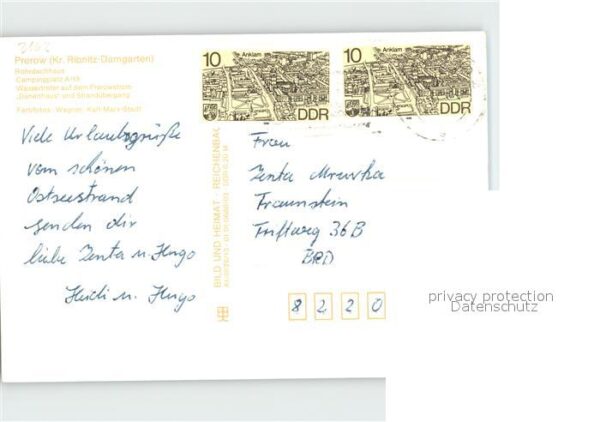 Prerow (Kr. Ribnitz-Damgarten)
Rohrdachhaus
Campingplatz
Wassertreter auf dem Prerowstrom
„Dünenhaus“ und Strandübergang
Farbfotos: Wagner, Karl-Marx-Stadt
10 Anklam DDR
10 Anklam DDR
Viele Urlaubsgrüße
vom schönen
Ostseestrand
senden dir
liebe Zenta u. Hugo
Heidi u. Hugo
BILD UND HEIMAT · REICHENBACH
Frau
Zenta Mrowka
Traunstein
Triftweg 36 B
BRD
8 2 2 0
privacy protection
Datenschutz